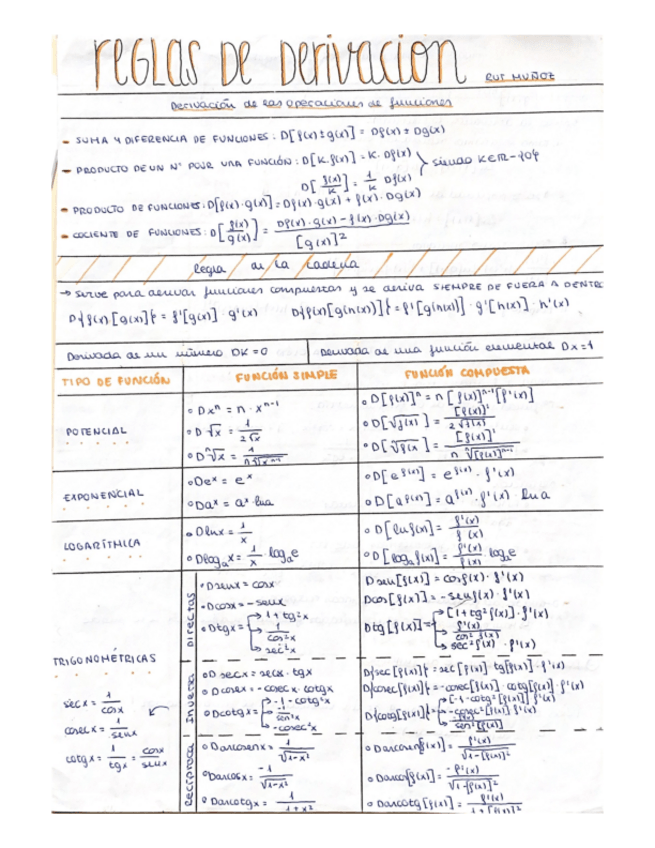 REGLAS DE DERIVACION RUT MUÑOZ
Derivación de las operaciones de funciones
- SUMA Y DIFERENCIA DE FUNCIONES: D[f(x)±g(x)] = Df(x) ± Dg(x)
- PRODUCTO DE UN Nº POR UNA FUNCIÓN: D[K·f(x)] = K·Df(x) } siendo K∈ℝ-{0}
D[f(x)/K] = 1/K Df(x)
- PRODUCTO DE FUNCIONES: D[f(x)·g(x)] = Df(x)·g(x) + f(x)·Dg(x)
- COCIENTE DE FUNCIONES: D[f(x)/g(x)] = Df(x)·g(x) - f(x)·Dg(x) / [g(x)]²
Regla de la Cadena
→ Sirve para derivar funciones compuestas y se deriva SIEMPRE DE FUERA A DENTRO
D{f(x)[g(x)]} = f'[g(x)]·g'(x) D{f(x)[g(h(x))]} = f'[g(h(x))]·g'[h(x)]·h'(x)
Derivada de un número DK=0 Derivada de una función elemental Dx=1
TIPO DE FUNCIÓN FUNCIÓN SIMPLE FUNCIÓN COMPUESTA
POTENCIAL
∘ Dxⁿ = n·xⁿ⁻¹ ∘ D[f(x)]ⁿ = n[f(x)]ⁿ⁻¹[f'(x)]
∘ D√x = 1/2√x ∘ D[√f(x)] = [f(x)]'/2√f(x)
∘ Dⁿ√x = 1/nⁿ√xⁿ⁻¹ ∘ D[ⁿ√f(x)] = [f(x)]'/n ⁿ√[f(x)]ⁿ⁻¹
EXPONENCIAL
∘ Deˣ = eˣ ∘ D[e^f(x)] = e^f(x)·f'(x)
∘ Daˣ = aˣ·lna ∘ D[a^f(x)] = a^f(x)·f'(x)·lna
LOGARÍTMICA
∘ Dlnx = 1/x ∘ D[lnf(x)] = f'(x)/f(x)
∘ Dlogₐx = 1/x·logₐe ∘ D[logₐf(x)] = f'(x)/f(x)·logₐe
TRIGONOMÉTRICAS
secx = 1/cosx
cosecx = 1/senx
cotgx = 1/tgx = cosx/senx
Directas
∘ Dsenx = cosx Dsen[f(x)] = cosf(x)·f'(x)
∘ Dcosx = -senx Dcos[f(x)] = -senf(x)·f'(x)
∘ Dtgx = → 1+tg²x Dtg[f(x)] = → [1+tg²f(x)]·f'(x)
→ 1/cos²x → f'(x)/cos²f(x)
→ sec²x → sec²f(x)·f'(x)
Inversa
∘ Dsecx = secx·tgx D{sec[f(x)]} = sec[f(x)]·tg[f(x)]·f'(x)
∘ Dcosecx = -cosecx·cotgx D{cosec[f(x)]} = -cosec[f(x)]·cotg[f(x)]·f'(x)
∘ Dcotgx = → -1-cotg²x D{cotg[f(x)]} = → [-1-cotg²[f(x)]]f'(x)
→ -cosec²x → -cosec²[f(x)]f'(x)
Recíproca
∘ Darcsenx = 1/√1-x² ∘ Darcsen[f(x)] = f'(x)/√1-[f(x)]²
∘ Darcosx = -1/√1-x² ∘ Darcos[f(x)] = -f'(x)/√1-[f(x)]²
∘ Darcotgx = 1/1+x² ∘ Darcotg[f(x)] = f'(x)/1+[f(x)]²